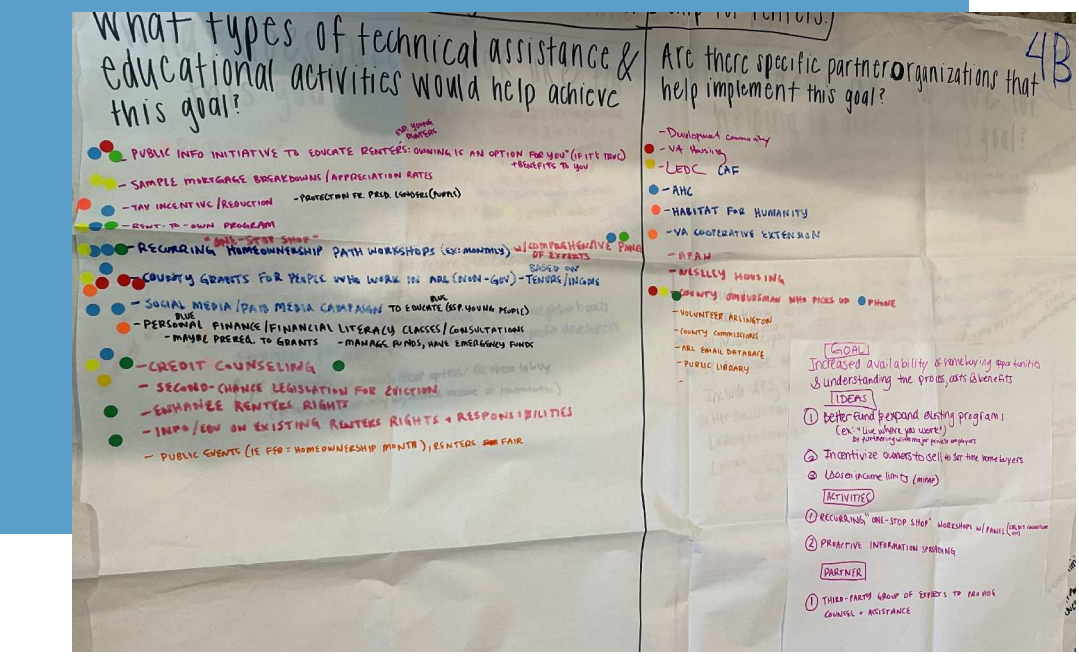 ship for renters.
What types of technical assistance &
educational activities would help achieve
this goal?
ESP. YOUNG
RENTERS
PUBLIC INFO INITIATIVE TO EDUCATE RENTERS: "OWNING IS AN OPTION FOR YOU" (IF IT'S TRUE)
+ BENEFITS TO YOU
- SAMPLE MORTGAGE BREAKDOWNS / APPRECIATION RATES
- TAX INCENTIVE / REDUCTION - PROTECTION FR. PRED. LENDERS
- RENT-TO-OWN PROGRAM
"ONE-STOP SHOP"
- RECURRING HOMEOWNERSHIP PATH WORKSHOPS (EX: MONTHLY) W/ COMPREHENSIVE PANEL
OF EXPERTS
BASED ON
COUNTY GRANTS FOR PEOPLE WHO WORK IN ARL (NON-GOV) - TENURE/INCOME
BLUE
- SOCIAL MEDIA / PAID MEDIA CAMPAIGN TO EDUCATE (ESP. YOUNG PEOPLE)
BLUE
- PERSONAL FINANCE / FINANCIAL LITERACY CLASSES / CONSULTATIONS
- MAYBE PREREQ. TO GRANTS - MANAGE FUNDS, HAVE EMERGENCY FUNDS
- CREDIT COUNSELING
- SECOND-CHANCE LEGISLATION FOR EVICTION
- ENHANCE RENTERS RIGHTS
- INFO/EDU ON EXISTING RENTERS RIGHTS + RESPONSIBILITIES
- PUBLIC EVENTS (IE FEB = HOMEOWNERSHIP MONTH), RENTERS FAIR
4B
Are there specific partner organizations that
help implement this goal?
- Development community
- VA Housing
- LEDC CAF
- AHC
- HABITAT FOR HUMANITY
- VA COOPERATIVE EXTENSION
- APAH
- WESLEY HOUSING
COUNTY OMBUDSMAN WHO PICKS UP PHONE
- VOLUNTEER ARLINGTON
- COUNTY COMMISSIONS
- ARL EMAIL DATABASE
- PUBLIC LIBRARY
-
GOAL
Increased availability of homebuying opportunities
& understanding the process, costs & benefits
IDEAS
① Better Fund & expand existing programs
(ex: "Live where you work")
by partnering with major private employers
② Incentivize owners to sell to 1st time home buyers
③ Loosen income limits (MIPAP)
ACTIVITIES
① RECURRING "ONE-STOP SHOP" WORKSHOPS W/ PANEL
② PROACTIVE INFORMATION SPREADING
PARTNER
① THIRD-PARTY GROUP OF EXPERTS TO PROVIDE
COUNSEL + ASSISTANCE